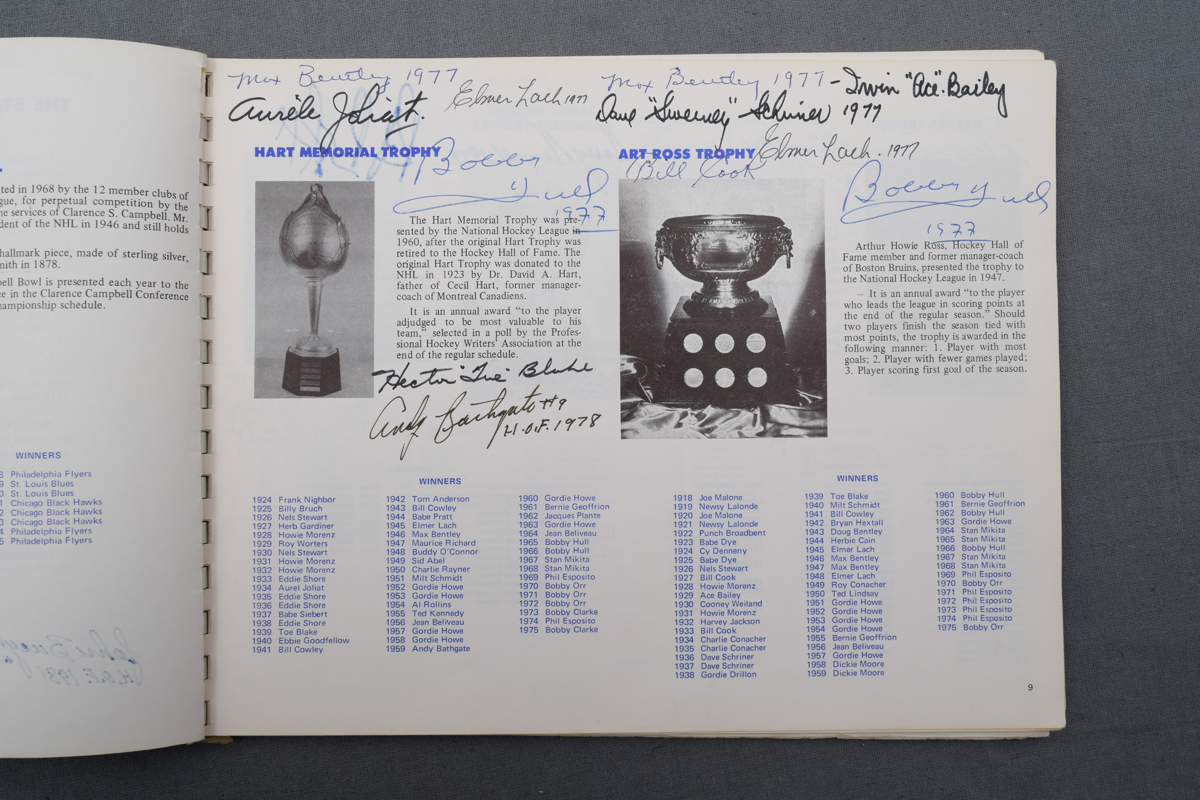 ted in 1968 by the 12 member clubs of
gue, for perpetual competition by the
he services of Clarence S. Campbell. Mr.
dent of the NHL in 1946 and still holds
hallmark piece, made of sterling silver,
mith in 1878.
bell Bowl is presented each year to the
ce in the Clarence Campbell Conference
hampionship schedule.
WINNERS
8 Philadelphia Flyers
9 St. Louis Blues
0 St. Louis Blues
1 Chicago Black Hawks
2 Chicago Black Hawks
3 Chicago Black Hawks
4 Philadelphia Flyers
5 Philadelphia Flyers
Max Bentley 1977
Aurèle Joliat.
Elmer Lach 1977
HART MEMORIAL TROPHY
Bobby Hull
1977
The Hart Memorial Trophy was pre-
sented by the National Hockey League in
1960, after the original Hart Trophy was
retired to the Hockey Hall of Fame. The
original Hart Trophy was donated to the
NHL in 1923 by Dr. David A. Hart,
father of Cecil Hart, former manager-
coach of Montreal Canadiens.
It is an annual award “to the player
adjudged to be most valuable to his
team,” selected in a poll by the Profes-
sional Hockey Writers' Association at the
end of the regular schedule.
Hector "Toe" Blake
Andy Bathgate #9
H.O.F. 1978
WINNERS
1924 Frank Nighbor
1925 Billy Bruch
1926 Nels Stewart
1927 Herb Gardiner
1928 Howie Morenz
1929 Roy Worters
1930 Nels Stewart
1931 Howie Morenz
1932 Howie Morenz
1933 Eddie Shore
1934 Aurel Joliat
1935 Eddie Shore
1936 Eddie Shore
1937 Babe Siebert
1938 Eddie Shore
1939 Toe Blake
1940 Ebbie Goodfellow
1941 Bill Cowley
1942 Tom Anderson
1943 Bill Cowley
1944 Babe Pratt
1945 Elmer Lach
1946 Max Bentley
1947 Maurice Richard
1948 Buddy O'Connor
1949 Sid Abel
1950 Charlie Rayner
1951 Milt Schmidt
1952 Gordie Howe
1953 Gordie Howe
1954 Al Rollins
1955 Ted Kennedy
1956 Jean Beliveau
1957 Gordie Howe
1958 Gordie Howe
1959 Andy Bathgate
1960 Gordie Howe
1961 Bernie Geoffrion
1962 Jacques Plante
1963 Gordie Howe
1964 Jean Beliveau
1965 Bobby Hull
1966 Bobby Hull
1967 Stan Mikita
1968 Stan Mikita
1969 Phil Esposito
1970 Bobby Orr
1971 Bobby Orr
1972 Bobby Orr
1973 Bobby Clarke
1974 Phil Esposito
1975 Bobby Clarke
Max Bentley 1977 - Irvin "Ace" Bailey
Dave "Sweeney" Schriner 1977
ART ROSS TROPHY
Elmer Lach. 1977
Bill Cook
Bobby Hull
1977
Arthur Howie Ross, Hockey Hall of
Fame member and former manager-coach
of Boston Bruins, presented the trophy to
the National Hockey League in 1947.
— It is an annual award “to the player
who leads the league in scoring points at
the end of the regular season.” Should
two players finish the season tied with
most points, the trophy is awarded in the
following manner: 1. Player with most
goals; 2. Player with fewer games played;
3. Player scoring first goal of the season.
WINNERS
1918 Joe Malone
1919 Newsy Lalonde
1920 Joe Malone
1921 Newsy Lalonde
1922 Punch Broadbent
1923 Babe Dye
1924 Cy Denneny
1925 Babe Dye
1926 Nels Stewart
1927 Bill Cook
1928 Howie Morenz
1929 Ace Bailey
1930 Cooney Weiland
1931 Howie Morenz
1932 Harvey Jackson
1933 Bill Cook
1934 Charlie Conacher
1935 Charlie Conacher
1936 Dave Schriner
1937 Dave Schriner
1938 Gordie Drillon
1939 Toe Blake
1940 Milt Schmidt
1941 Bill Cowley
1942 Bryan Hextall
1943 Doug Bentley
1944 Herbie Cain
1945 Elmer Lach
1946 Max Bentley
1947 Max Bentley
1948 Elmer Lach
1949 Roy Conacher
1950 Ted Lindsay
1951 Gordie Howe
1952 Gordie Howe
1953 Gordie Howe
1954 Gordie Howe
1955 Bernie Geoffrion
1956 Jean Beliveau
1957 Gordie Howe
1958 Dickie Moore
1959 Dickie Moore
1960 Bobby Hull
1961 Bernie Geoffrion
1962 Bobby Hull
1963 Gordie Howe
1964 Stan Mikita
1965 Stan Mikita
1966 Bobby Hull
1967 Stan Mikita
1968 Stan Mikita
1969 Phil Esposito
1970 Bobby Orr
1971 Phil Esposito
1972 Phil Esposito
1973 Phil Esposito
1974 Phil Esposito
1975 Bobby Orr
9